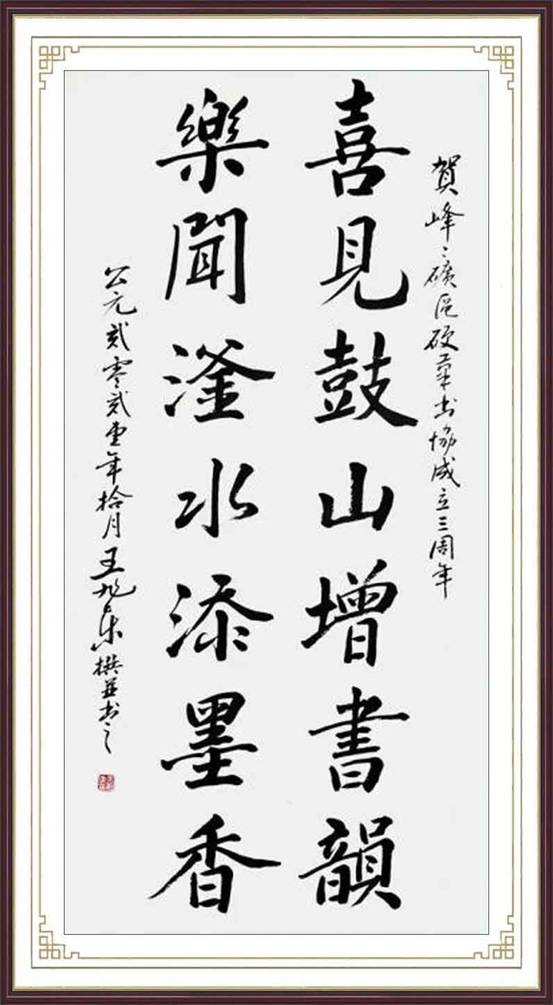 賀峰〻礦區硬筆书協成立三周年
喜見鼓山增書韻
樂聞滏水添墨香
公元贰零贰壹年拾月王旭东撰并书之